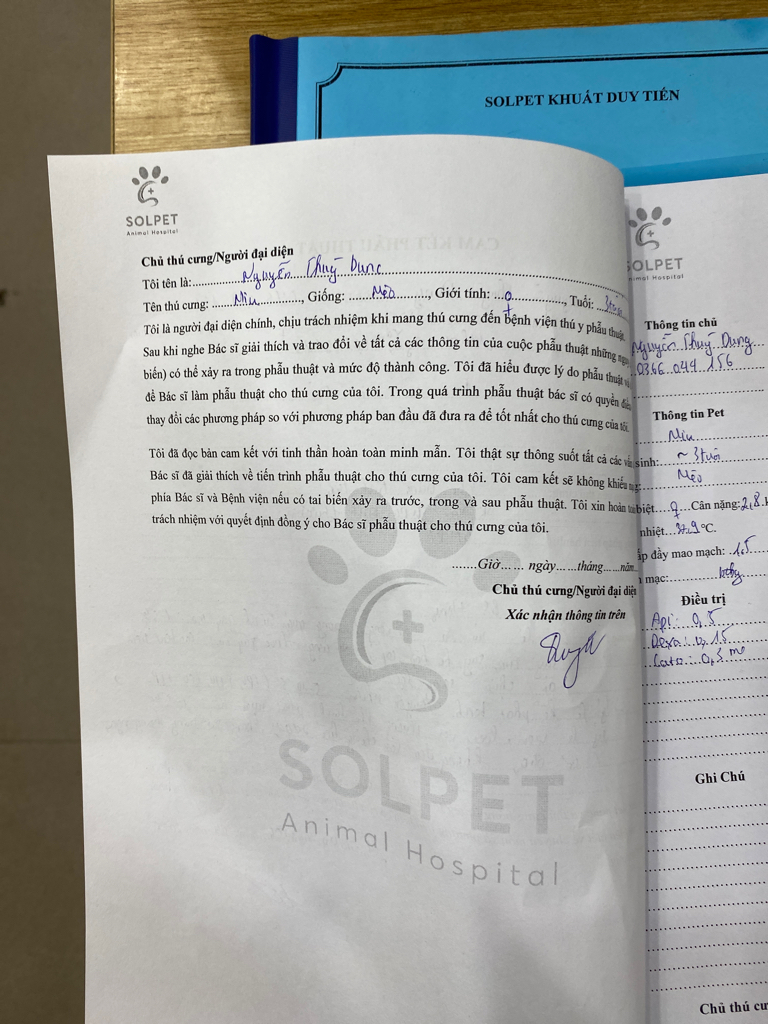 SOLPET KHUẤT DUY TIẾN
SOLPET
Animal Hospital
Chủ thú cưng/Người đại diện
Tôi tên là: Nguyễn Thuỳ Dung
Tên thú cưng: Miu, Giống: Mèo, Giới tính: ♀, Tuổi:
Tôi là người đại diện chính, chịu trách nhiệm khi mang thú cưng đến bệnh viện thú y phẫu thuật.
Sau khi nghe Bác sĩ giải thích và trao đổi về tất cả các thông tin của cuộc phẫu thuật những
biến) có thể xảy ra trong phẫu thuật và mức độ thành công. Tôi đã hiểu được lý do phẫu thuật
để Bác sĩ làm phẫu thuật cho thú cưng của tôi. Trong quá trình phẫu thuật bác sĩ có quyền
thay đổi các phương pháp so với phương pháp ban đầu đã đưa ra để tốt nhất cho thú cưng của tôi.
Tôi đã đọc bản cam kết với tinh thần hoàn toàn minh mẫn. Tôi thật sự thông suốt tất cả các
Bác sĩ đã giải thích về tiến trình phẫu thuật cho thú cưng của tôi. Tôi cam kết sẽ không khiếu
phía Bác sĩ và Bệnh viện nếu có tai biến xảy ra trước, trong và sau phẫu thuật. Tôi xin hoàn
trách nhiệm với quyết định đồng ý cho Bác sĩ phẫu thuật cho thú cưng của tôi.
.......Giờ...... ngày......tháng......năm
Chủ thú cưng/Người đại diện
Xác nhận thông tin trên
SOLPET
Animal Hospital
SOLPET
Animal Hospital
Thông tin chủ
Nguyễn Thuỳ Dung
0366 049 156
Thông tin Pet
Miu
sinh: ~ 3 tuổi
Mèo
biệt....♀...Cân nặng: 2,8
nhiệt 37,9 °C.
ấp đầy mao mạch: 1,5
mạc:
Điều trị
Api: 0,5
Dexa: 0,15
Cato: 0,3 ml
Ghi Chú
Chủ thú cư